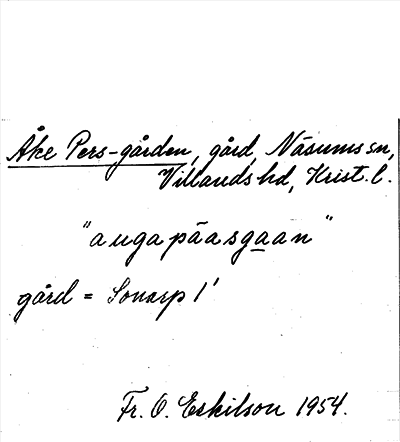 Åke Pers-gården, gård, Näsums sn,
Villands hd, Krist. l.
"augapäasgaan"
gård = Sonarp 1¹
Fr. O. Eskilson 1954.